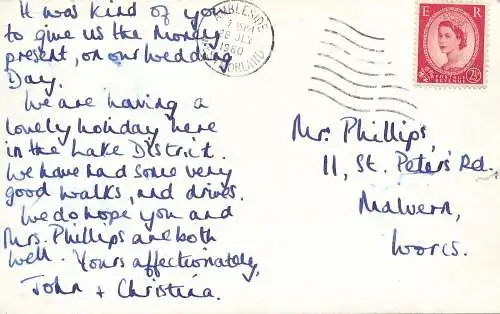 It was kind of you
to give us the money
present, on our wedding
Day.
We are having a
lovely holiday here
in the Lake District.
We have had some very
good walks, and drives.
We do hope you and
Mrs. Phillips are both
well. Yours affectionately,
John + Christina.
AMBLESIDE
28 JLY
1960
WESTMORLAND
E R
2½
Mr. Phillips,
11, St. Peter's Rd.
Malvern,
Worcs.